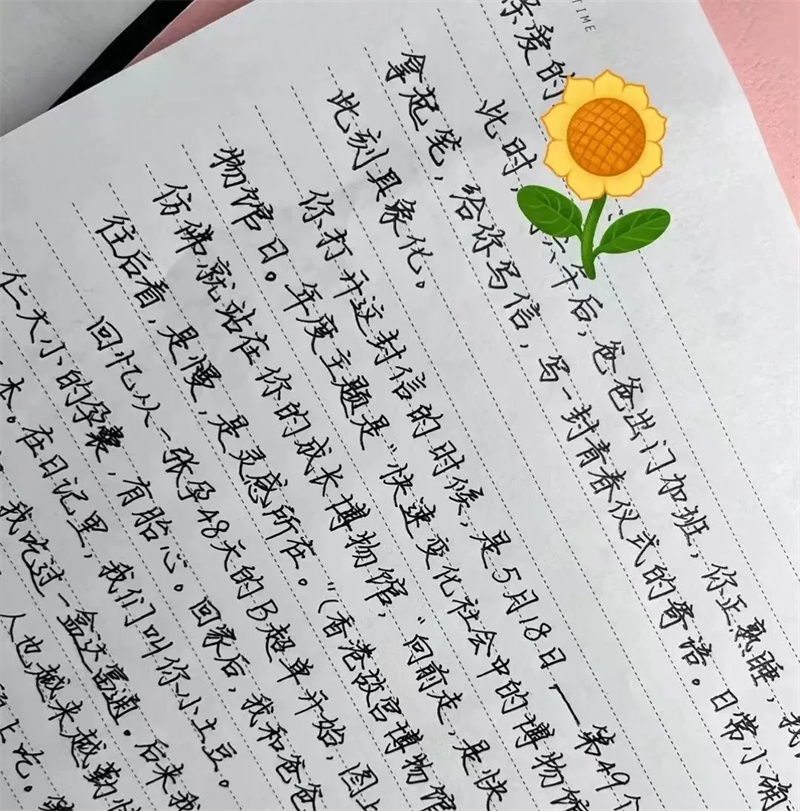 TIME
亲爱的
此时,六午后,爸爸出门加班,你正熟睡,我
拿起笔,给你写信,写一封青春仪式的寄语。日常小确
此刻具象化。
你打开这封信的时候,是5月18日——第49个
物馆日。年度主题是“快速变化社会中的博物馆
仿佛就站在你的成长博物馆,“向前走,是快
往后看,是慢,是灵感所在。”(香港故宫博物馆
回忆从一张孕48天的B超单开始,图上
仁大小的孕囊,有胎心。回家后,我和爸爸
本。在日记里,我们叫你小土豆。
我吃过一盒达喜通。后来我
人也越来越勤
上吃。